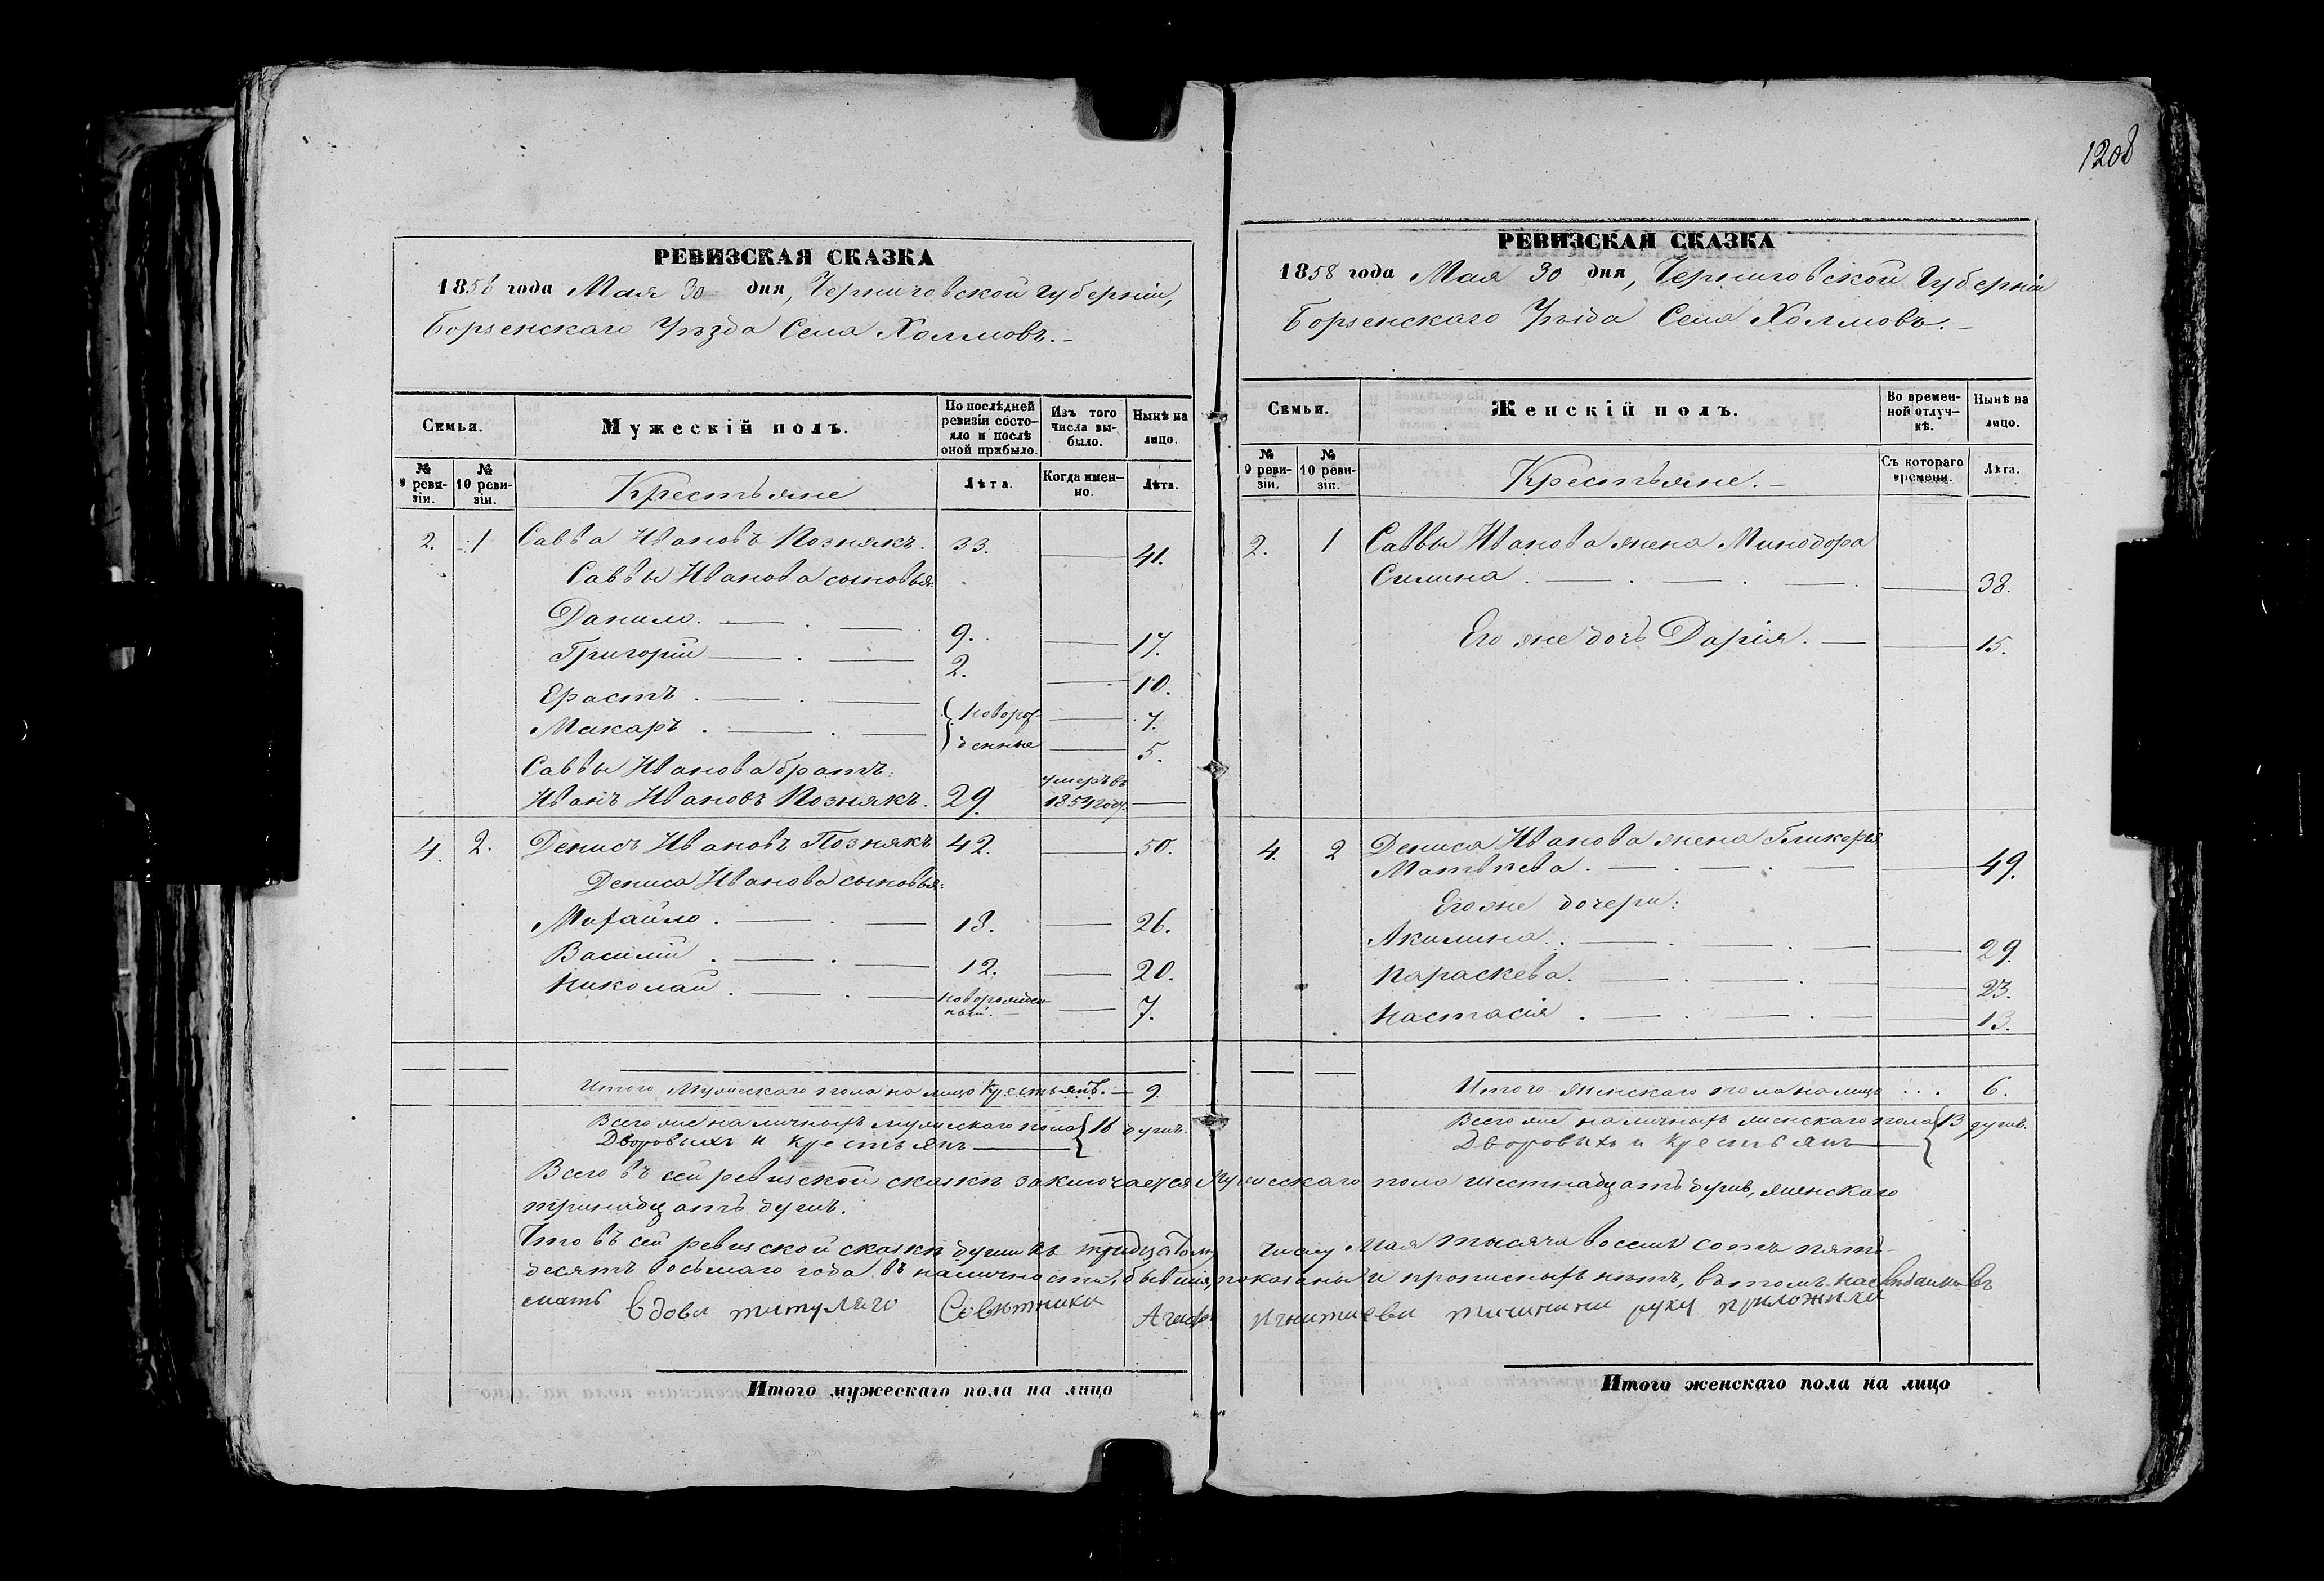 1208
РЕВИЗСКАЯ СКАЗКА
1858 года Мая 30 дня, Черниговской Губерніи,
Борзенскаго Уѣзда Села Холмовъ.
Семьи.
Мужескій полъ.
По послѣдней ревизіи состояло и послѣ оной прибыло.
Изъ того числа выбыло.
Нынѣ на лицо.
№ 9 ревизіи.
№ 10 ревизіи.
Крестьяне
Лѣта.
Когда именно.
Лѣта.
2. 1 Савва Ивановъ Познякъ. 33. — 41.
Саввы Иванова сыновья:
Данило. — . — 9. — 17.
Григорій — . — 2. — 10.
Ерастъ . — . — новорож- — 7.
Макаръ . — . — денные — 5.
Саввы Иванова братъ:
Иванъ Ивановъ Познякъ. 29. умеръ въ 1854 году. —
4. 2. Денисъ Ивановъ Познякъ 42. — 50.
Дениса Иванова сыновья:
Михайло . — . — 18. — 26.
Василій . — . — 12. — 20.
Николай . — . — новорожденный. — 7.
Итого Мужескаго пола на лицо Крестьянъ. — 9.
Всего же наличныхъ мужескаго пола 16 душъ.
Дворовыхъ и крестьянъ
РЕВИЗСКАЯ СКАЗКА
1858 года Мая 30 дня, Черниговской Губерніи
Борзенскаго Уѣзда Села Холмовъ.
Семьи.
Женскій полъ.
Во временной отлучкѣ.
Нынѣ на лицо.
№ 9 ревизіи.
№ 10 ревизіи.
Крестьяне.
Съ котораго времени.
Лѣта.
2. 1 Саввы Иванова жена Минодора
Силина . — . — . — . — 38.
Его же дочь Дарія. — — 15.
4. 2 Дениса Иванова жена Гликерія
Матвѣева . — . — . — — 49.
Его же дочери:
Акилина. . — . — . — — 29.
Параскева. — . — . — — 23.
Настасія . — . — . — — 13.
Итого женскаго пола на лицо . . . 6.
Всего же наличныхъ женскаго пола 13 душъ.
Дворовыхъ и крестьянъ
Всего въ сей ревизской сказкѣ заключается Мужескаго пола шестнадцать душъ, женскаго
тринадцать душъ.
Что въ сей ревизской сказкѣ души къ тридцатому числу Мая тысяча восемь сотъ пять-
десятъ восьмаго года въ наличности бывшія, показаны и прописныхъ нѣтъ, въ томъ
вдова титуляго Советника руку приложила
Итого мужескаго пола на лицо
Итого женскаго пола на лицо